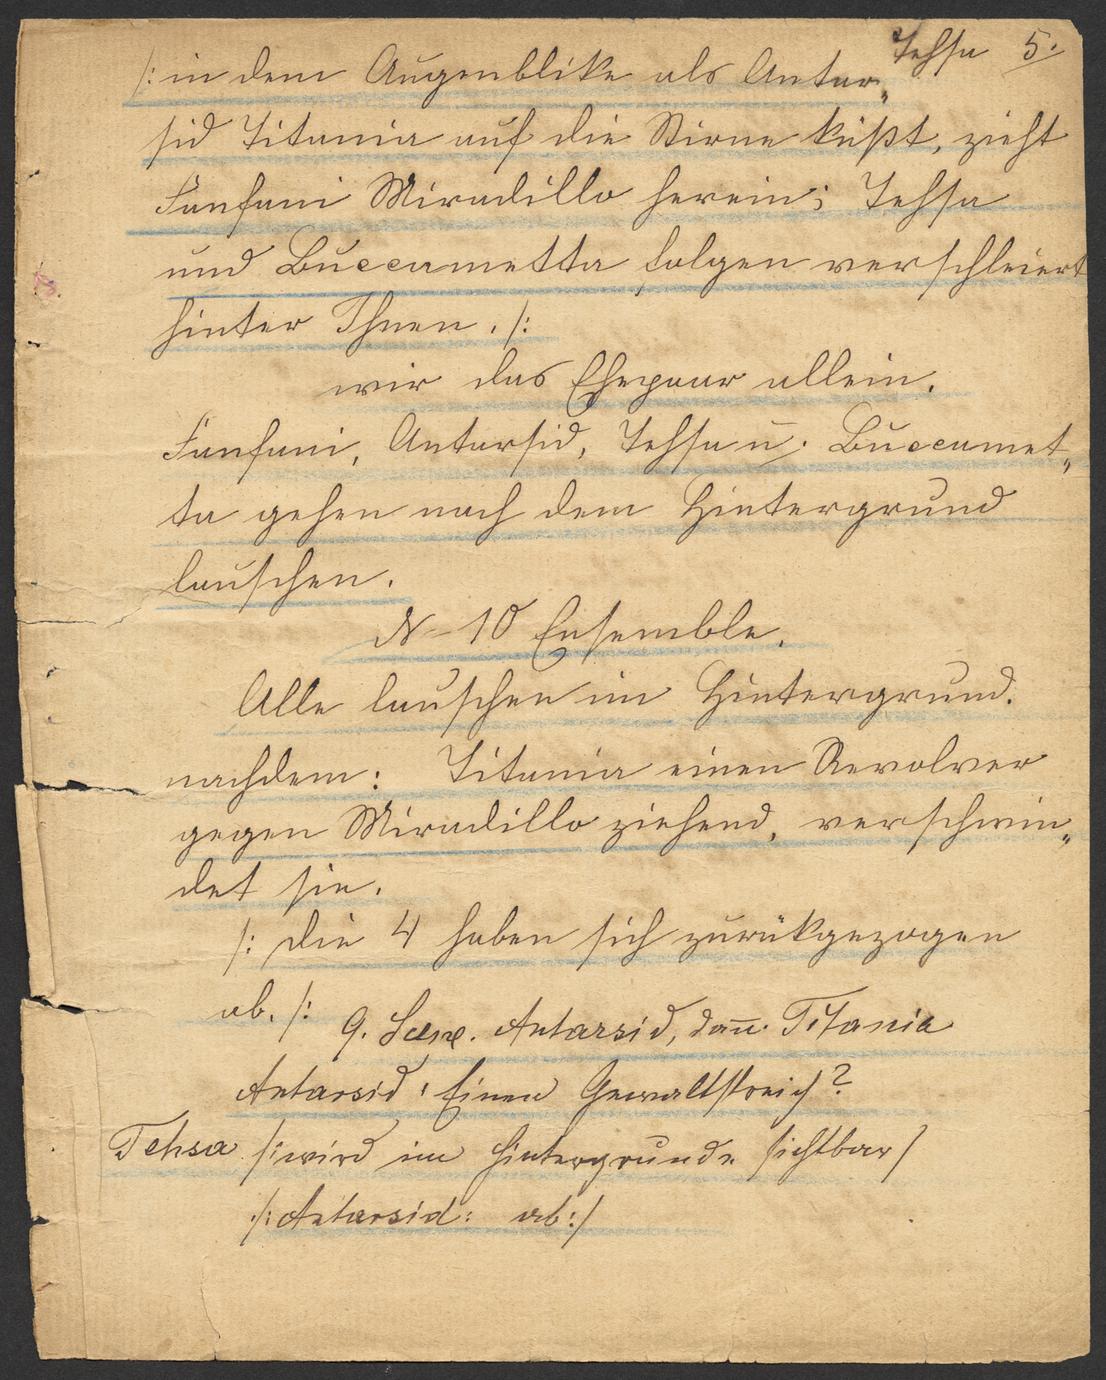 Tehsa 5.
/: in dem Augenblike als Antar„
sid Titania auf die Stirne küßt, zieht
Fanfani Miradillo herein; Tehsa
und Buccametta folgen verschleiert
hinter Ihnen. /:
wir das Ehepaar allein.
Fanfani, Antarsid, Tehsa u. Buccamet„
ta gehen nach dem Hintergrund
lauschen.
N– 10 Ensemble.
Alle lauschen im Hintergrund.
nachdem: Titania einen Revolver
gegen Miradillo ziehend, verschwin„
det sie.
/: die 4 haben sich zurükgezogen
ab. /:
9. Scene. Antarsid, dan̄. Titania
Antarsid: Einen Gewaltstreich?
Tehsa /: wird im Hintergrunde sichtbar /
/: Antarsid: ab :/